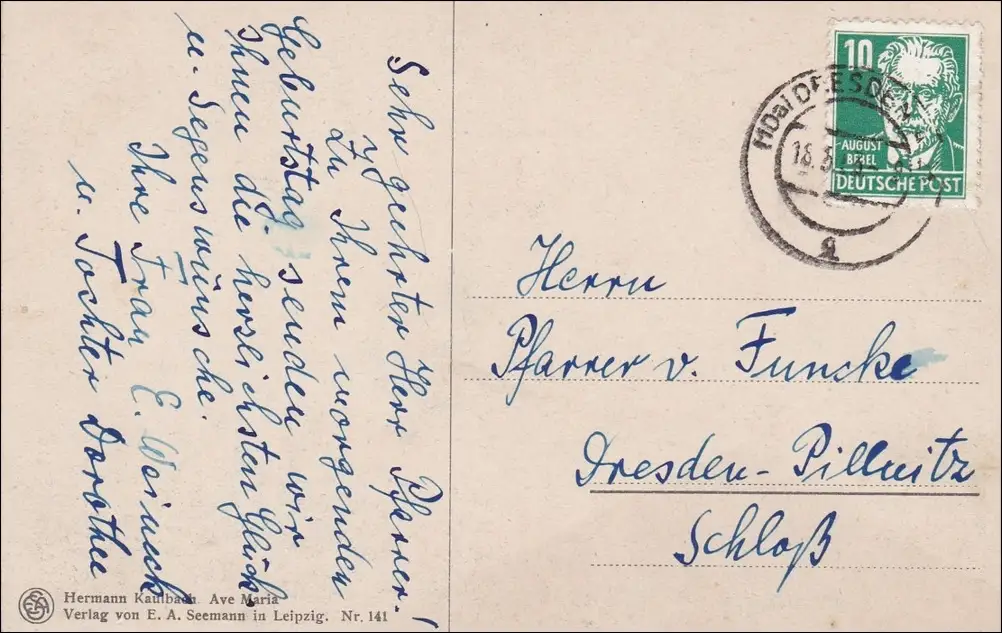 Sehr geehrter Herr Pfarrer!
Zu Ihrem morgenden
Geburtstag senden wir
Ihnen die herzlichsten Glück-
u. Segenswünsche.
Ihre Frau E. Weineck
u. Tochter Dorothee
10
AUGUST
BEBEL
DEUTSCHE POST
DRESDEN
18.5
a
Herrn
Pfarrer v. Funcke
Dresden-Pillnitz
Schloß
Hermann Kaulbach. Ave Maria
Verlag von E. A. Seemann in Leipzig. Nr. 141